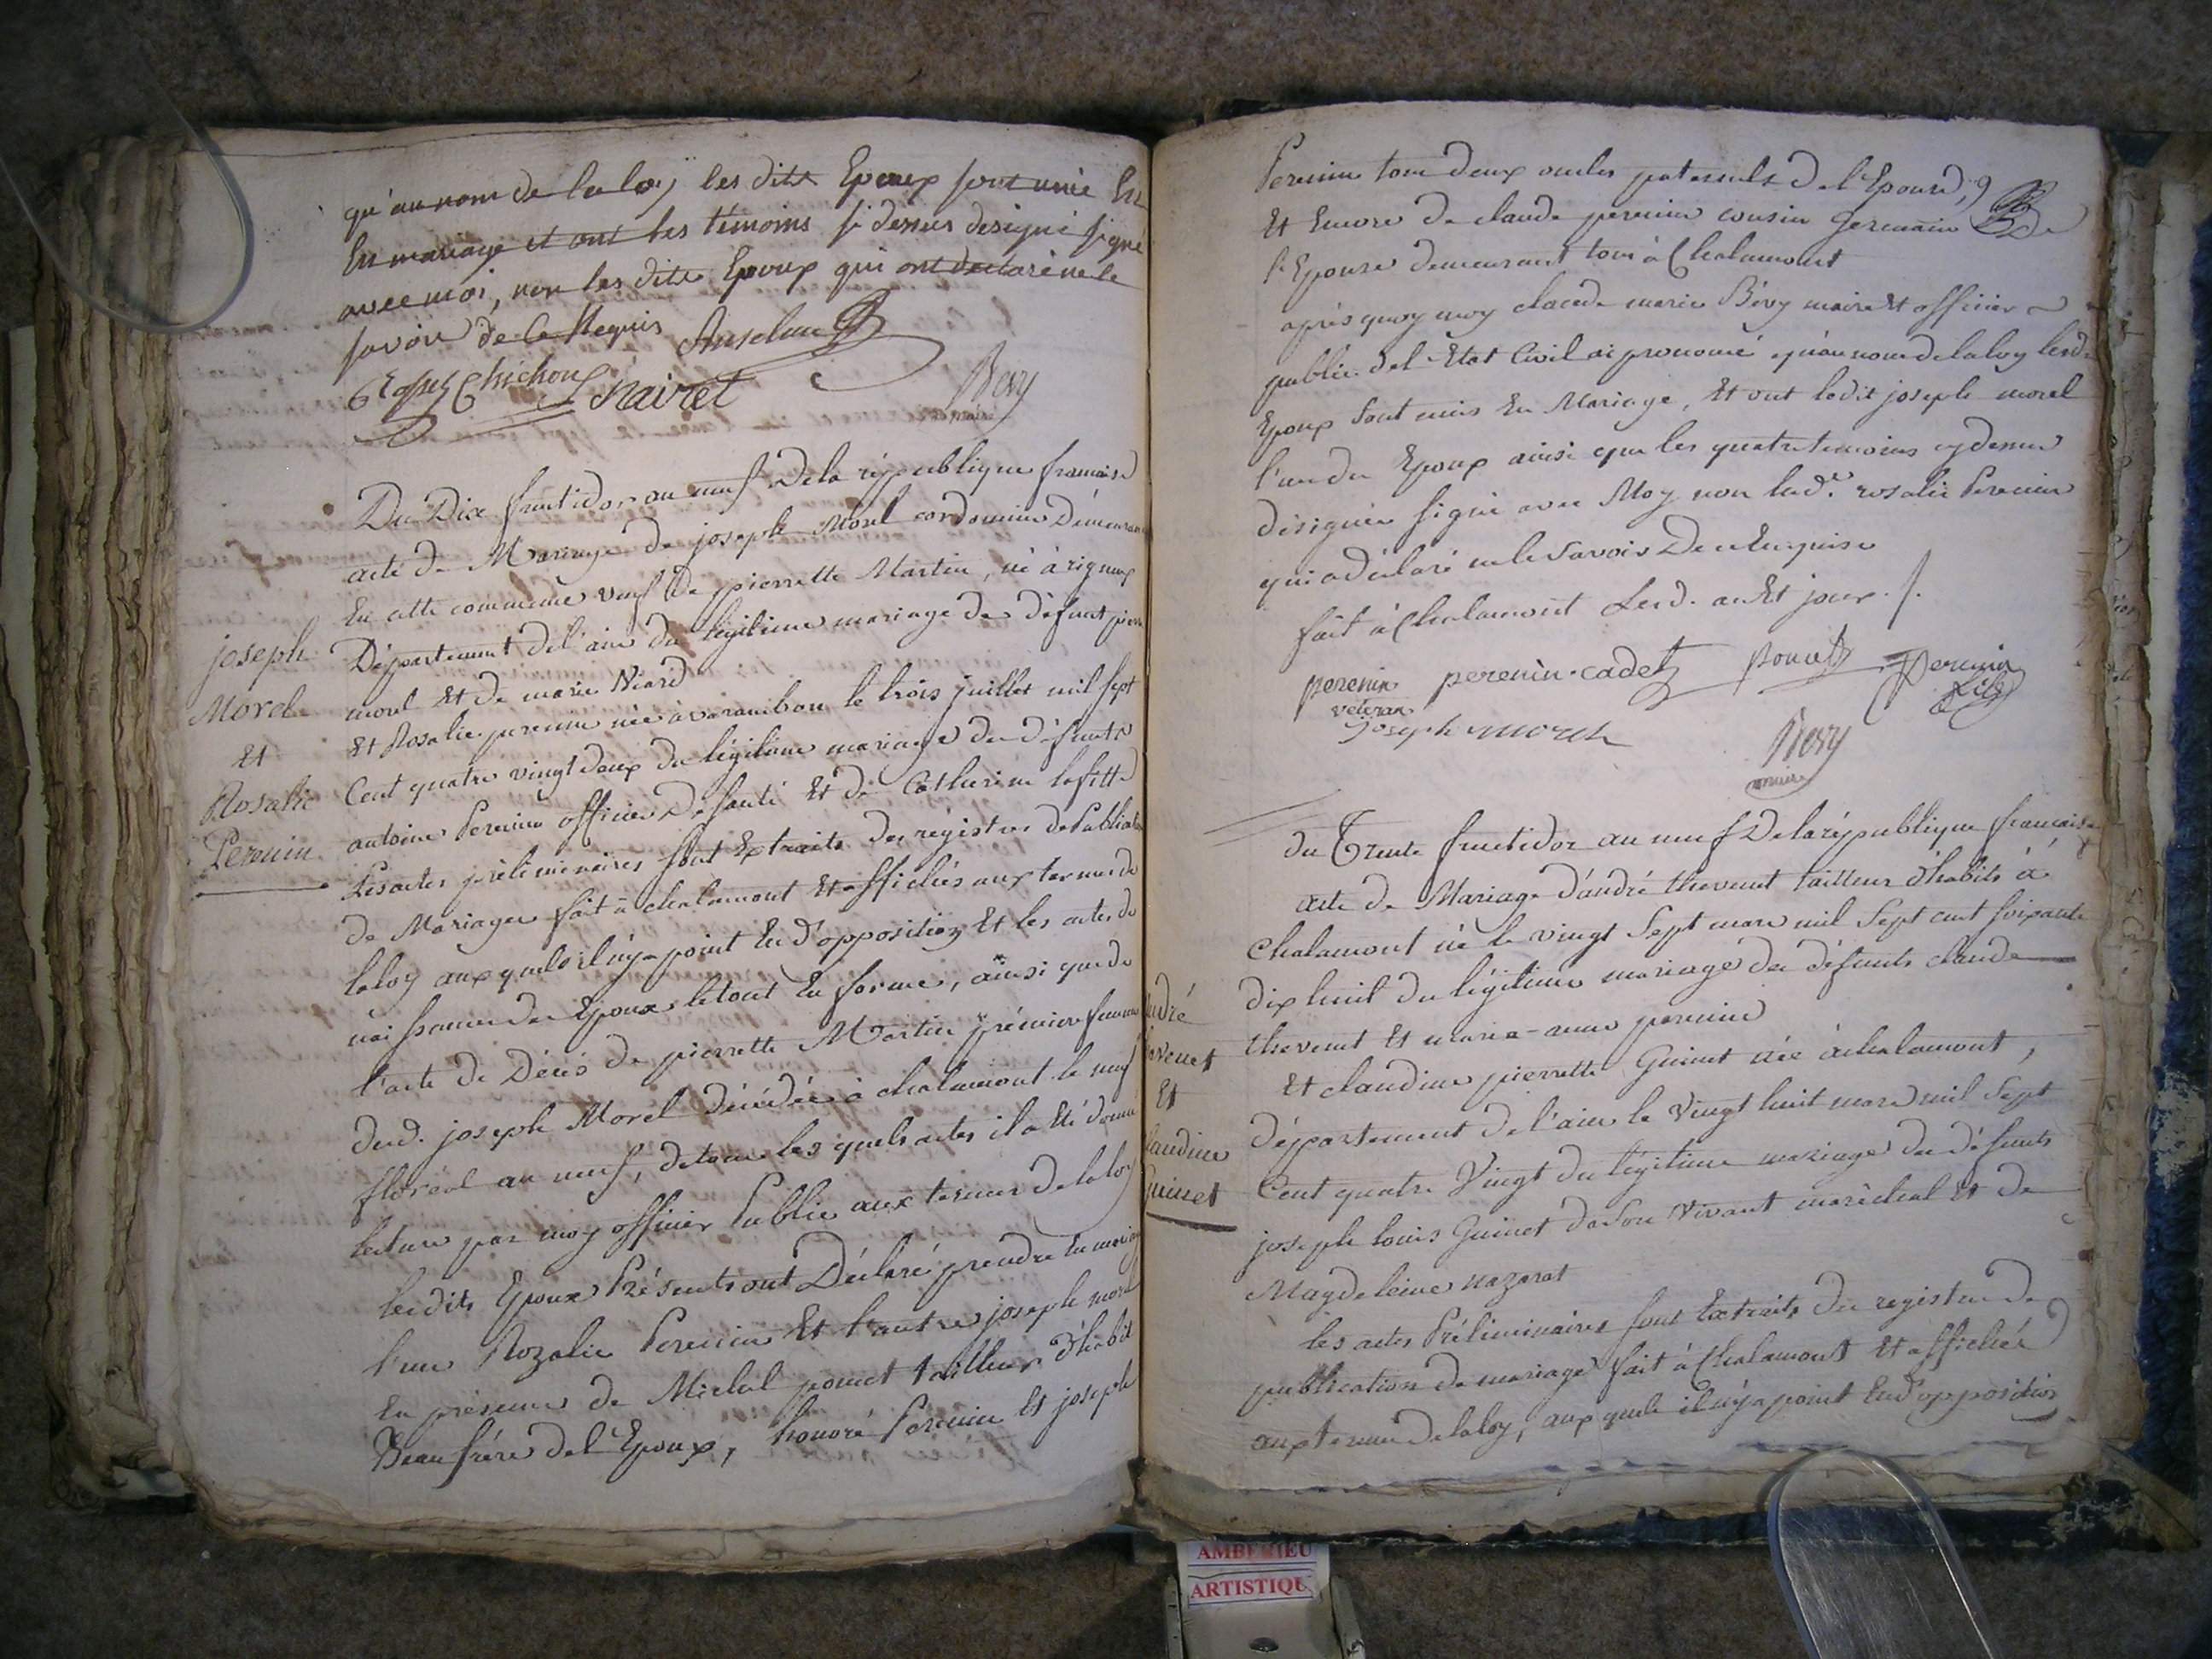 qu'au nom de la loÿ les dits Epoux sont unie En
En mariage et ont les témoins si dessus designé signé
avec moi, non les dits Epoux qui ont declaré ne le
savoir de ce Requis Anselme
Chichon
Nairet
Bevy
maire
Du Dix fructidor an neuf De la république francaise
acte de Mariage de joseph Morel cordonnier Demeurant
En cette commune veuf de pierrette Martin, né à rigneux
Département de l'ain du légitime mariage de défunt pierre
morel Et de marie Niard
Et Rosalie perenin née à varambon le trois juillet mil sept
Cent quatre vingt deux du légitime mariage des défunts
antoine Perenin officier De santé Et de Catherine lafitte
Les actes préliminaires sont Extraits des régistres de Publication
de Mariages fait à chalamont Et affichés aux termes de
la loy auxquels il n'y a point Eu d'opposition Et les actes de
naissance des Epoux le tout En forme, ainsi que de
l'acte de Décès de pierrette Martin prémiere femme
dud. joseph Morel décédée à chalamont le neuf
floréal an neuf, de tous les quels actes il a Eté donné
lecture par moy officier Public aux termes de la loy
lesdits Epoux Présents ont Déclaré prendre En mariage
l'un Rozalie Perenin Et l'autre joseph morel
En présence de Michel poncet tailleur d'habit
Beaufrére de l'Epoux, honoré Perenin Et joseph
joseph
Morel
Et
Rosalie
Perenin
Perenin tous deux oncles paternels De l'Epouse,
Et Encore De claude perenin cousin Germain De
l'Epouse demeurant tous à Chalamont
après quoy moy claude marie Bévy maire Et officier
public de l'Etat Civil ai prononcé qu'au nom de la loy lesd.
Epoux sont unis En Mariage, Et ont ledit joseph morel
l'un des Epoux ainsi que les quatre temoins cydessus
désignés signé avec Moy non lad.e rosalie Perenin
qui a déclaré ne le savoir De ce Enquise
fait à Chalamont Lesd. an Et jour ./.
perenin perenin-cadet poncet Perenin
veteran
Joseph morel
Bevy
maire
du Trente fructidor an neuf De la république française
acte de Mariage d'andré thevenet tailleur d'habits à
Chalamont né le vingt Sept mars mil Sept cent soixante
dix huit du légitime mariage des défunts claude
thevenet Et marie-anne perenin
Et claudine pierrette Guinet née à chalamont,
département de l'ain le Vingt huit mars mil Sept
Cent quatre Vingt du légitime mariage des défunts
joseph louis Guinet de son Vivant maréchal Et de
Magdeleine nazarat
les actes Préliminaires sont Extraits des registres de
publication de mariage fait à Chalamont Et affichés
aux termes de la loy, aux quels il n'y a point Eu d'opposition
andré
hevenet
Et
laudine
Guinet
AMBERIEU
ARTISTIQU